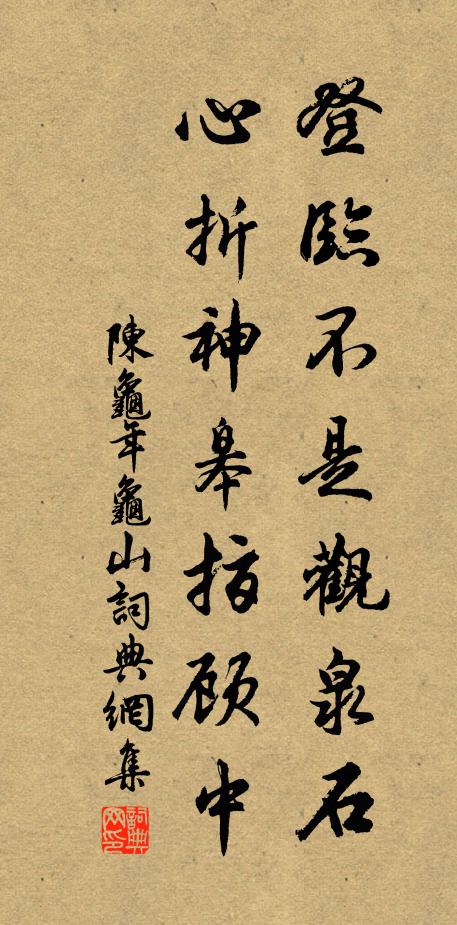 登臨不是觀泉石
心折神皋指顾中
陳龜年龜山詞典網集
詞典网印